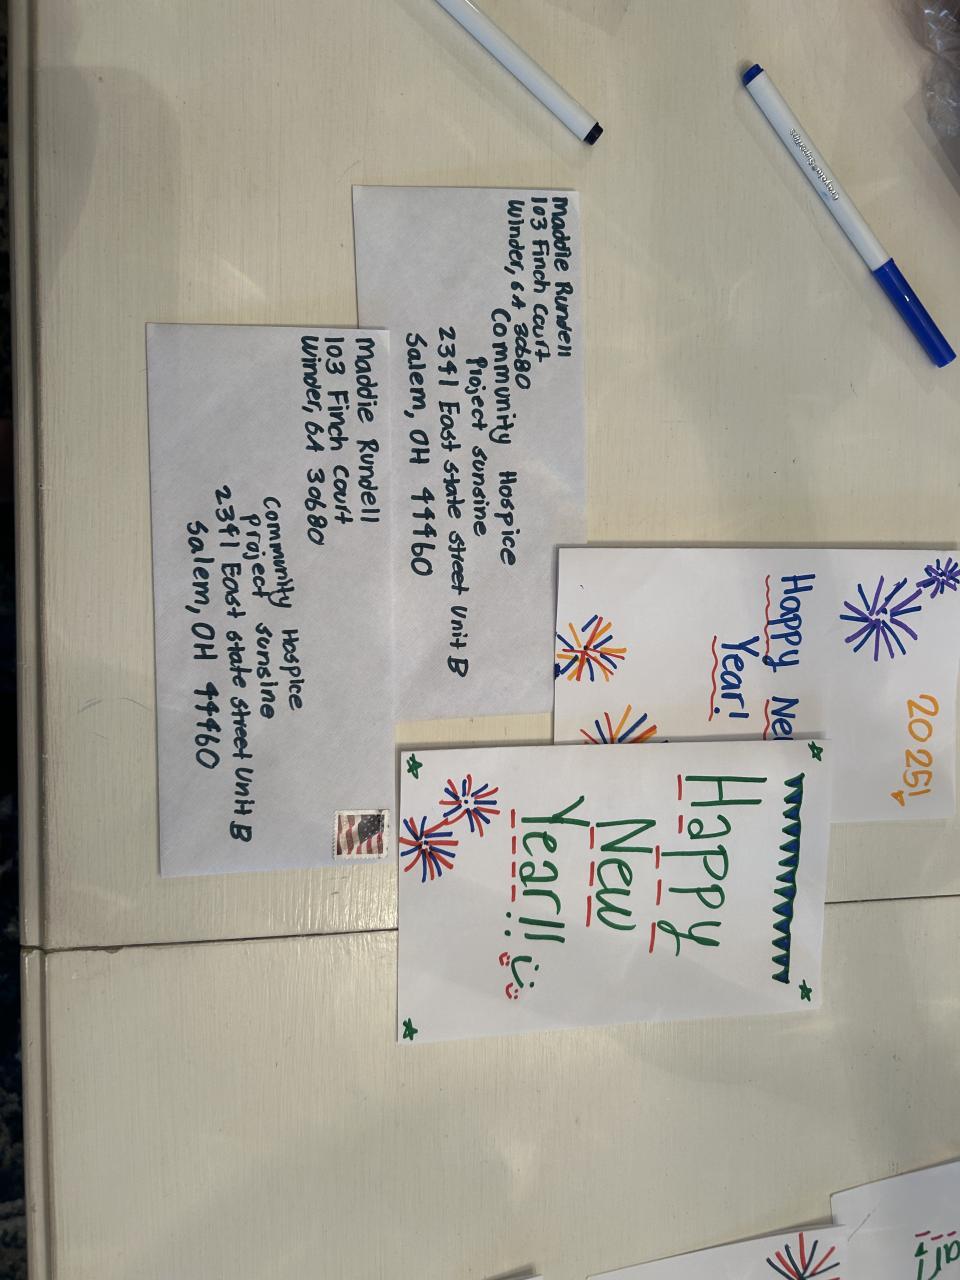 Maddie Rundell
103 Finch Court
Winder, GA 30680
Community Hospice
Project sunsine
2341 East state street Unit B
Salem, OH 44460
Maddie Rundell
103 Finch Court
Winder, GA 30680
Community Hospice
Project sunsine
2341 East state street Unit B
Salem, OH 44460
2025!
Happy Ne
Year!
Happy
New
Year!! :)
:)